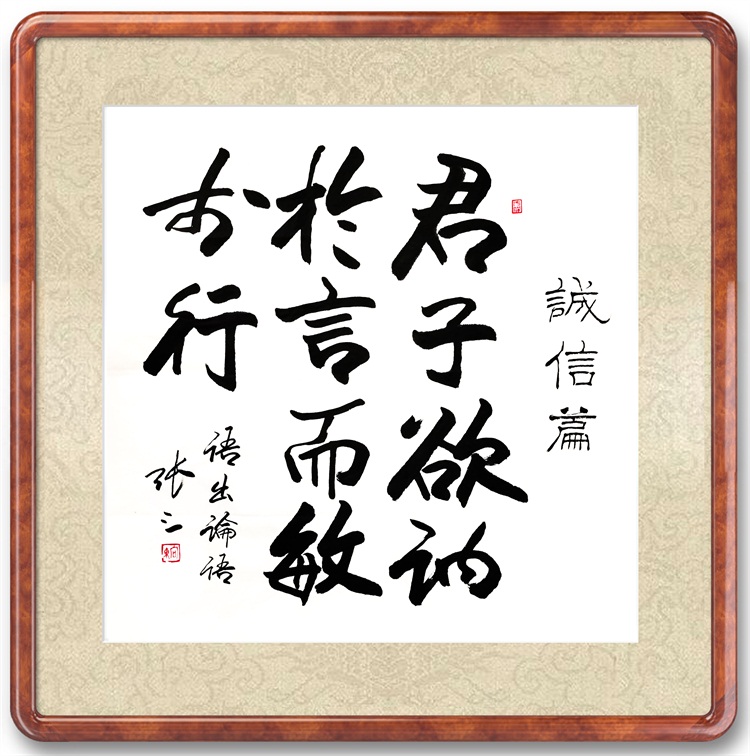 誠信篇
君子欲訥
於言而敏
於行
语出論语
张三